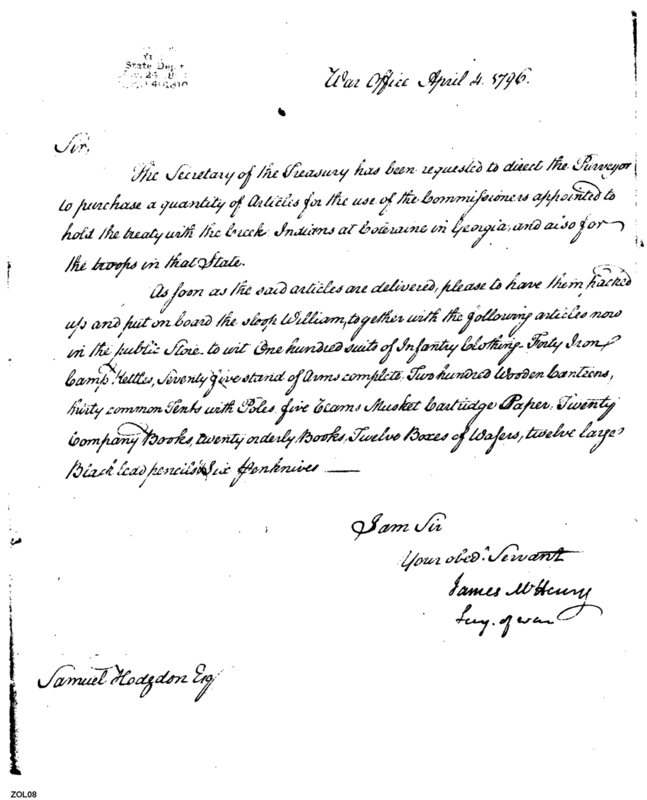 State Dep
War Office April 4. 1796.
Sir,
The Secretary of the Treasury has been requested to direct the Purveyor
to purchase a quantity of Articles for the use of the Commissioners appointed to
hold the treaty with the Creek Indians at Coleraine in Georgia, and also for
the troops in that State.
As soon as the said articles are delivered, please to have them packed
up and put on board the sloop William, together with the following articles now
in the public Store to wit One hundred suits of Infantry Clothing. Forty Iron
Camp Kettles, Seventy five stand of Arms complete, Two hundred Wooden Canteens,
thirty common Tents with Poles, five Reams Musket Cartridge Paper, Twenty
Company Books, twenty orderly Books, Twelve Boxes of Wafers, twelve large
Black lead pencils & Six Penknives
I am Sir
Your obed.t Servant
James McHenry
Secy. of war
Samuel Hodgdon Esq
ZOL08